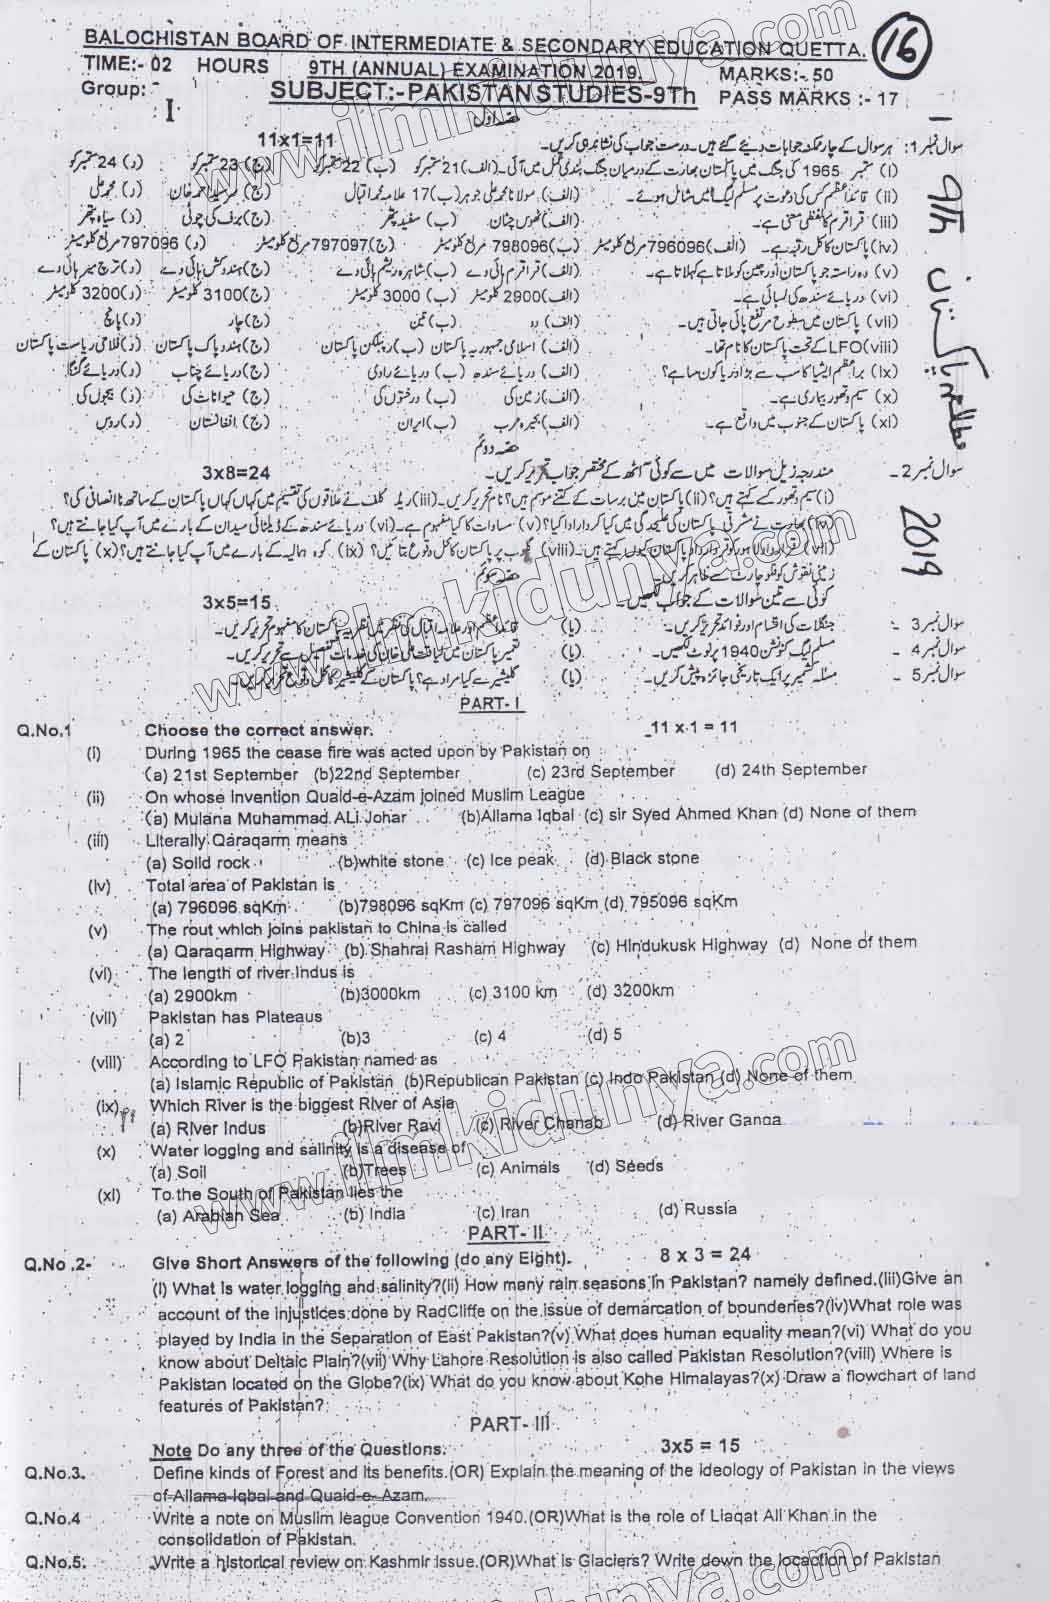 BALOCHISTAN BOARD OF INTERMEDIATE & SECONDARY EDUCATION QUETTA.
16
TIME:- 02 HOURS 9TH (ANNUAL) EXAMINATION 2019. MARKS:- 50
Group:- I SUBJECT:-PAKISTAN STUDIES-9Th PASS MARKS :- 17
حصہ اول
11x1=11
سوال نمبر 1: ہر سوال کے چار ممکنہ جوابات دیئے گئے ہیں۔ درست جواب کی نشاندہی کریں۔
(i) ستمبر 1965 کی جنگ میں پاکستان بھارت کے درمیان جنگ بندی عمل میں آئی۔ (الف) 21 ستمبر کو (ب) 22 ستمبر کو (ج) 23 ستمبر کو (د) 24 ستمبر کو
(ii) قائداعظم کس کی دعوت پر مسلم لیگ میں شامل ہوئے۔ (الف) مولانا محمد علی جوہر (ب) 17 علامہ محمد اقبال (ج) سرسید احمد خان (د) محمد علی
(iii) قراقرم کا لفظی معنی ہے۔ (الف) ٹھوس چٹان (ب) سفید پتھر (ج) برف کی چوٹی (د) سیاہ پتھر
(iv) پاکستان کا کل رقبہ ہے۔ (الف) 796096 مربع کلومیٹر (ب) 798096 مربع کلومیٹر (ج) 797097 مربع کلومیٹر (د) 797096 مربع کلومیٹر
(v) وہ راستہ جو پاکستان اور چین کو ملاتا ہے کہلاتا ہے۔ (الف) قراقرم ہائی وے (ب) شاہراہ ریشم ہائی وے (ج) ہندوکش ہائی وے (د) ترچ میر ہائی وے
(vi) دریائے سندھ کی لمبائی ہے۔ (الف) 2900 کلومیٹر (ب) 3000 کلومیٹر (ج) 3100 کلومیٹر (د) 3200 کلومیٹر
(vii) پاکستان میں سطوح مرتفع پائی جاتی ہیں۔ (الف) دو (ب) تین (ج) چار (د) پانچ
(viii) LFO کے تحت پاکستان کا نام تھا۔ (الف) اسلامی جمہوریہ پاکستان (ب) ریپبلکن پاکستان (ج) ہندو پاک پاکستان (د) فلاحی ریاست پاکستان
(ix) براعظم ایشیا کا سب سے بڑا دریا کونسا ہے؟ (الف) دریائے سندھ (ب) دریائے راوی (ج) دریائے چناب (د) دریائے گنگا
(x) سیم و تھور بیماری ہے۔ (الف) زمین کی (ب) درختوں کی (ج) حیوانات کی (د) بیجوں کی
(xi) پاکستان کے جنوب میں واقع ہے۔ (الف) بحیرہ عرب (ب) ایران (ج) افغانستان (د) روس
حصہ دوئم
سوال نمبر 2۔ مندرجہ ذیل سوالات میں سے کوئی آٹھ کے مختصر جواب تحریر کریں۔ 3x8=24
(i) سیم و تھور کسے کہتے ہیں؟ (ii) پاکستان میں برسات کے کتنے موسم ہیں؟ نام تحریر کریں۔ (iii) ریڈ کلف نے علاقوں کی تقسیم میں کہاں کہاں پاکستان کے ساتھ ناانصافی کی؟
(iv) بھارت نے مشرقی پاکستان کی علیحدگی میں کیا کردار ادا کیا؟ (v) مساوات کا کیا مفہوم ہے۔ (vi) دریائے سندھ کے ڈیلٹائی میدان کے بارے میں آپ کیا جانتے ہیں؟
(vii) قرارداد لاہور کو قرارداد پاکستان کیوں کہتے ہیں۔ (viii) گلوب پر پاکستان کا محل وقوع بتائیں؟ (ix) کوہ ہمالیہ کے بارے میں آپ کیا جانتے ہیں؟ (x) پاکستان کے
زمینی نقوش کو فلو چارٹ سے ظاہر کریں۔
حصہ سوئم
کوئی سے تین سوالات کے جواب لکھیں۔ 3x5=15
سوال نمبر 3۔ جنگلات کی اقسام اور فوائد تحریر کریں۔ (یا) قائداعظم اور علامہ اقبال کی نظر میں نظریہ پاکستان کا مفہوم تحریر کریں۔
سوال نمبر 4۔ مسلم لیگ کنونشن 1940 پر نوٹ لکھیں۔ (یا) تعمیر پاکستان میں لیاقت علی خان کی خدمات تفصیل سے تحریر کریں۔
سوال نمبر 5۔ مسئلہ کشمیر پر ایک تاریخی جائزہ پیش کریں۔ (یا) گلیشیر سے کیا مراد ہے؟ پاکستان کے گلیشیر کا محل وقوع تحریر کریں۔
9th مطالعہ پاکستان
2019
PART- I
Q.No.1 Choose the correct answer. 11 x 1 = 11
(i) During 1965 the cease fire was acted upon by Pakistan on
(a) 21st September (b)22nd September (c) 23rd September (d) 24th September
(ii) On whose Invention Quaid-e-Azam joined Muslim League
(a) Mulana Muhammad ALi Johar (b)Allama Iqbal (c) sir Syed Ahmed Khan (d) None of them
(iii) Literally Qaraqarm means
(a) Solid rock (b)white stone (c) Ice peak (d) Black stone
(iv) Total area of Pakistan is
(a) 796096 sqKm (b)798096 sqKm (c) 797096 sqKm (d) 795096 sqKm
(v) The rout which joins pakistan to China is called
(a) Qaraqarm Highway (b) Shahrai Rasham Highway (c) Hindukusk Highway (d) None of them
(vi) The length of river Indus is
(a) 2900km (b)3000km (c) 3100 km (d) 3200km
(vii) Pakistan has Plateaus
(a) 2 (b)3 (c) 4 (d) 5
(viii) According to LFO Pakistan named as
(a) Islamic Republic of Pakistan (b)Republican Pakistan (c) Indo Pakistan (d) None of them
(ix) Which River is the biggest River of Asia
(a) River Indus (b)River Ravi (c) River Chanab (d) River Ganga
(x) Water logging and salinity is a disease of
(a) Soil (b)Trees (c) Animals (d) Seeds
(xi) To the South of Pakistan lies the
(a) Arabian Sea (b) India (c) Iran (d) Russia
PART- II
Q.No .2- Give Short Answers of the following (do any Eight). 8 x 3 = 24
(i) What is water logging and salinity?(ii) How many rain seasons in Pakistan? namely defined.(iii)Give an
account of the injustices done by RadCliffe on the issue of demarcation of bounderies?(iv)What role was
played by India in the Separation of East Pakistan?(v) What does human equality mean?(vi) What do you
know about Deltaic Plain?(vii) Why Lahore Resolution is also called Pakistan Resolution?(viii) Where is
Pakistan located on the Globe?(ix) What do you know about Kohe Himalayas?(x) Draw a flowchart of land
features of Pakistan?
PART- III
Note Do any three of the Questions. 3x5 = 15
Q.No.3. Define kinds of Forest and its benefits.(OR) Explain the meaning of the ideology of Pakistan in the views
of Allama Iqbal and Quaid-e- Azam.
Q.No.4 Write a note on Muslim league Convention 1940.(OR)What is the role of Liaqat Ali Khan in the
consolidation of Pakistan.
Q.No.5: Write a historical review on Kashmir issue.(OR)What is Glaciers? Write down the locaction of Pakistan
www.ilmkidunya.com
www.ilmkidunya.com
www.ilmkidunya.com